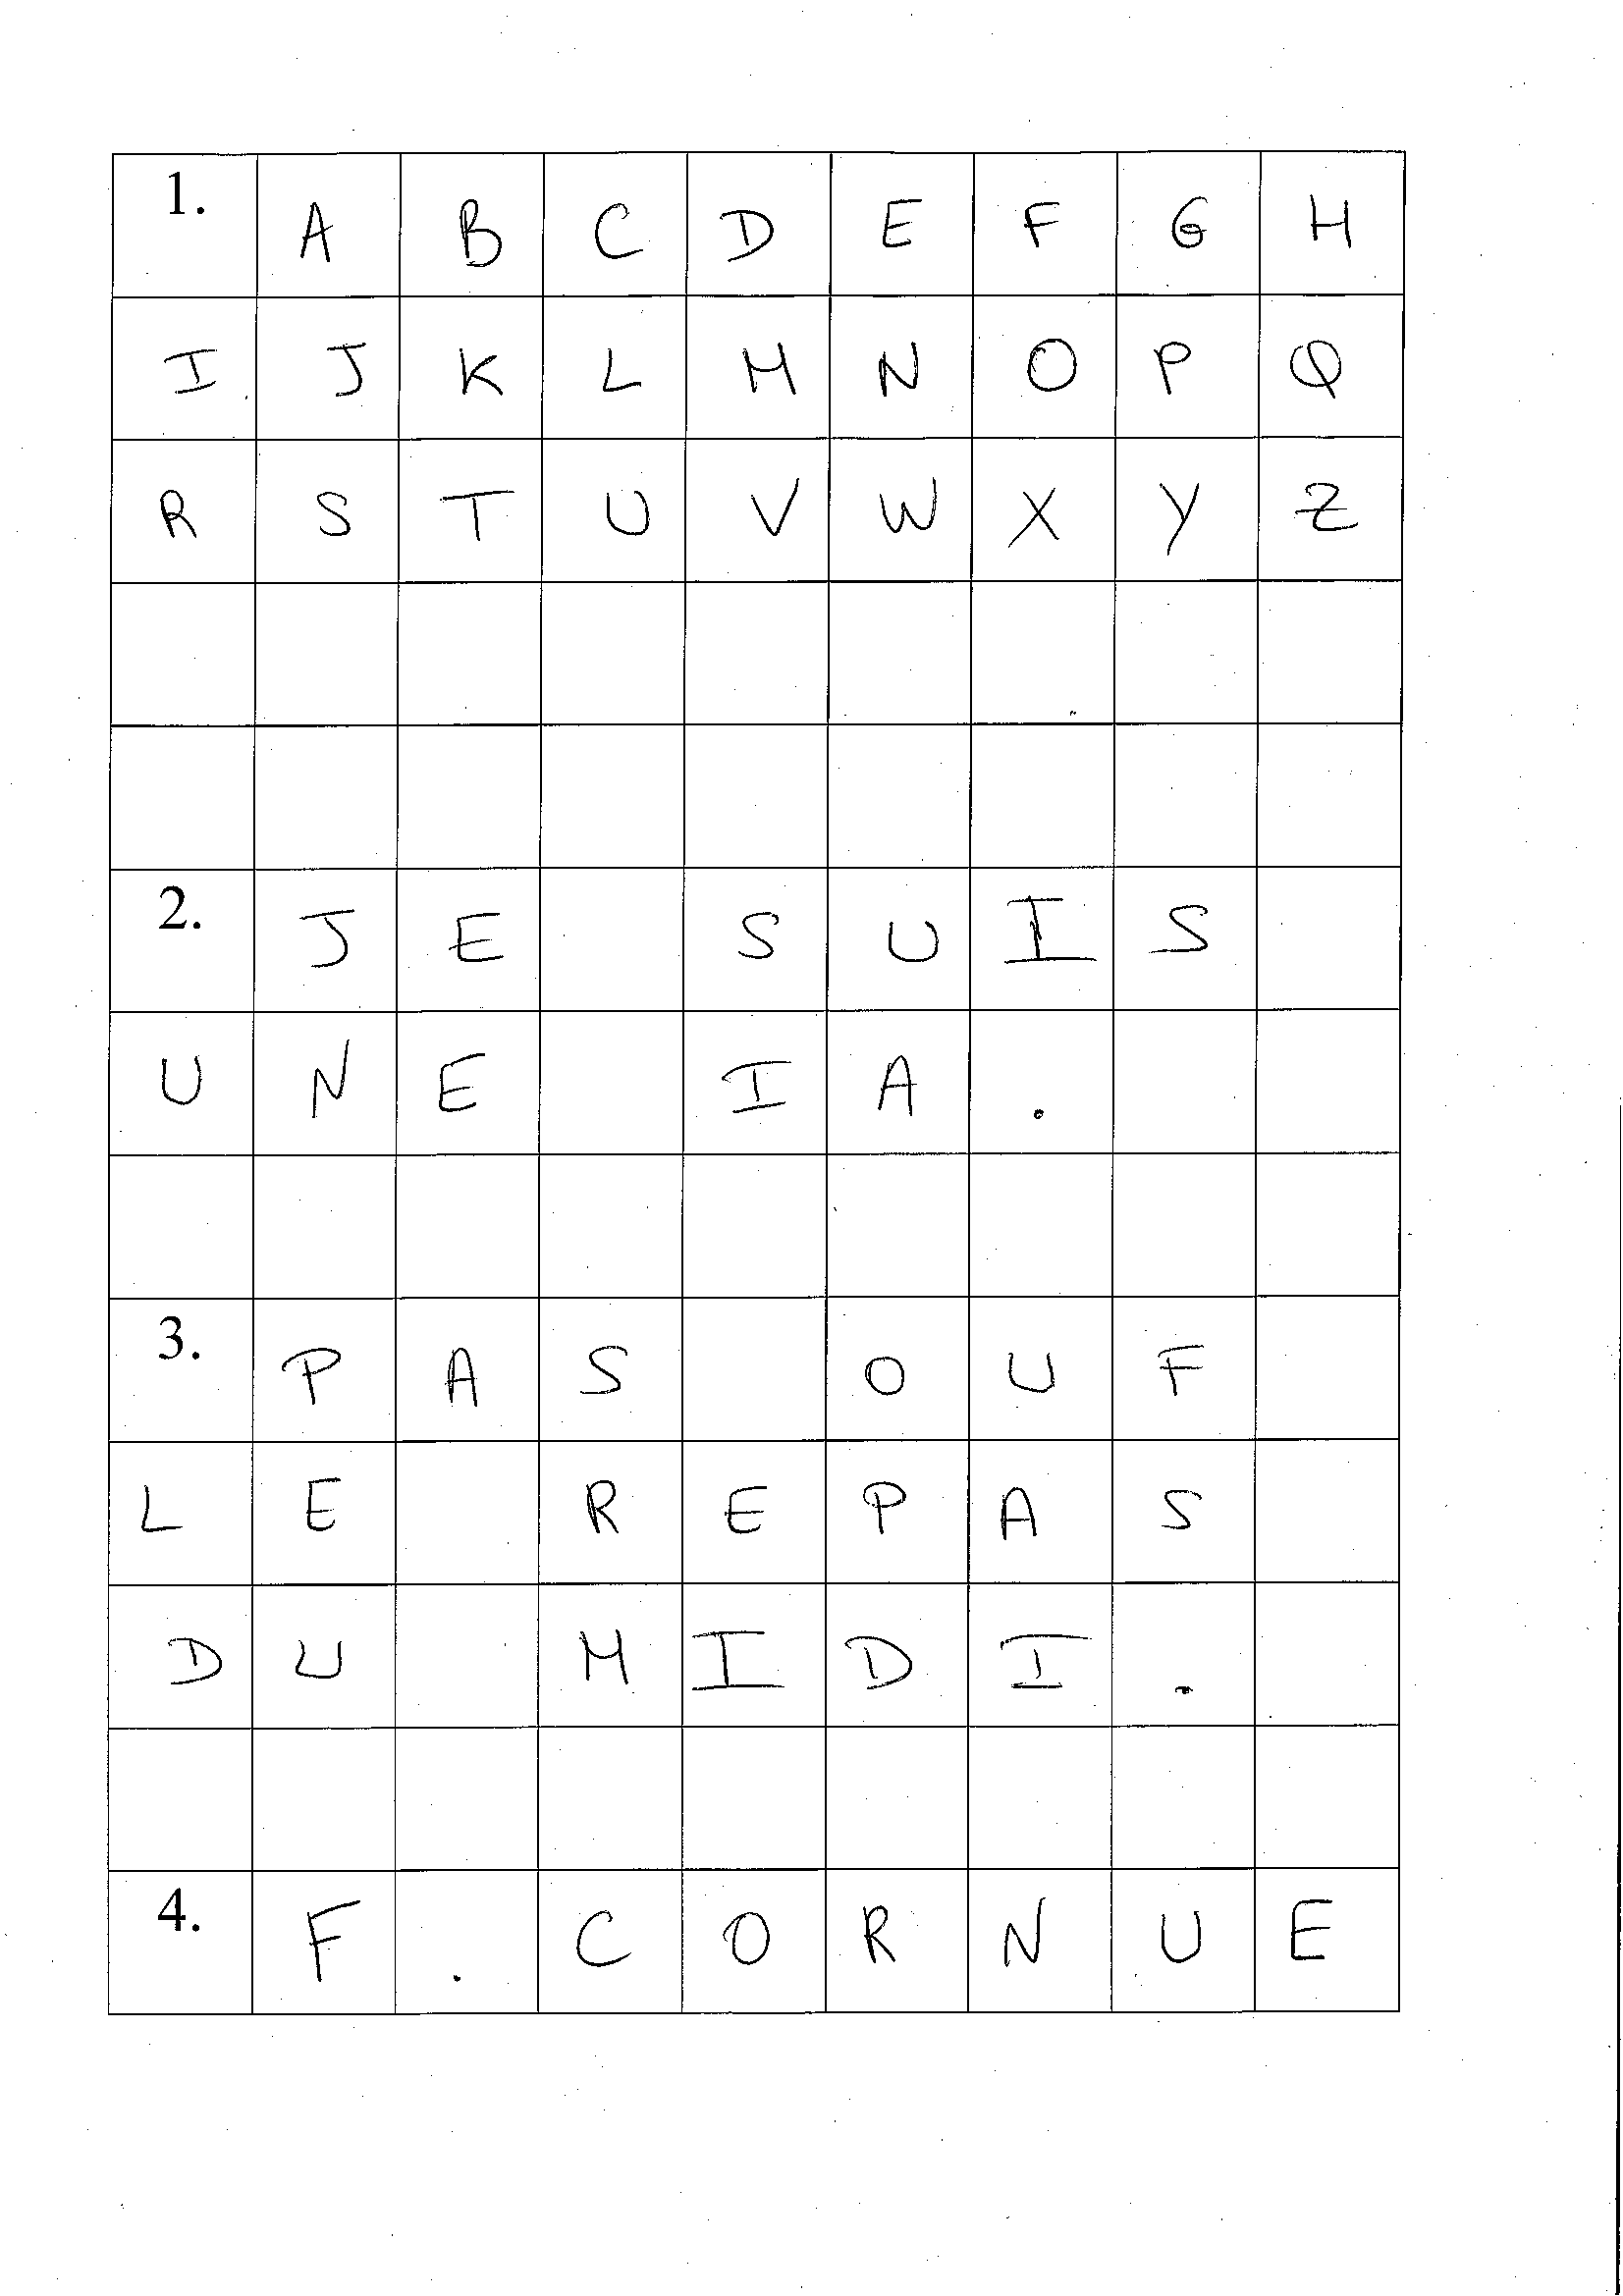 1. A B C D E F G H
I J K L M N O P Q
R S T U V W X Y Z
2. J E S U I S
U N E I A .
3. P A S O U F
L E R E P A S
D U M I D I .
4. F . C O R N U E